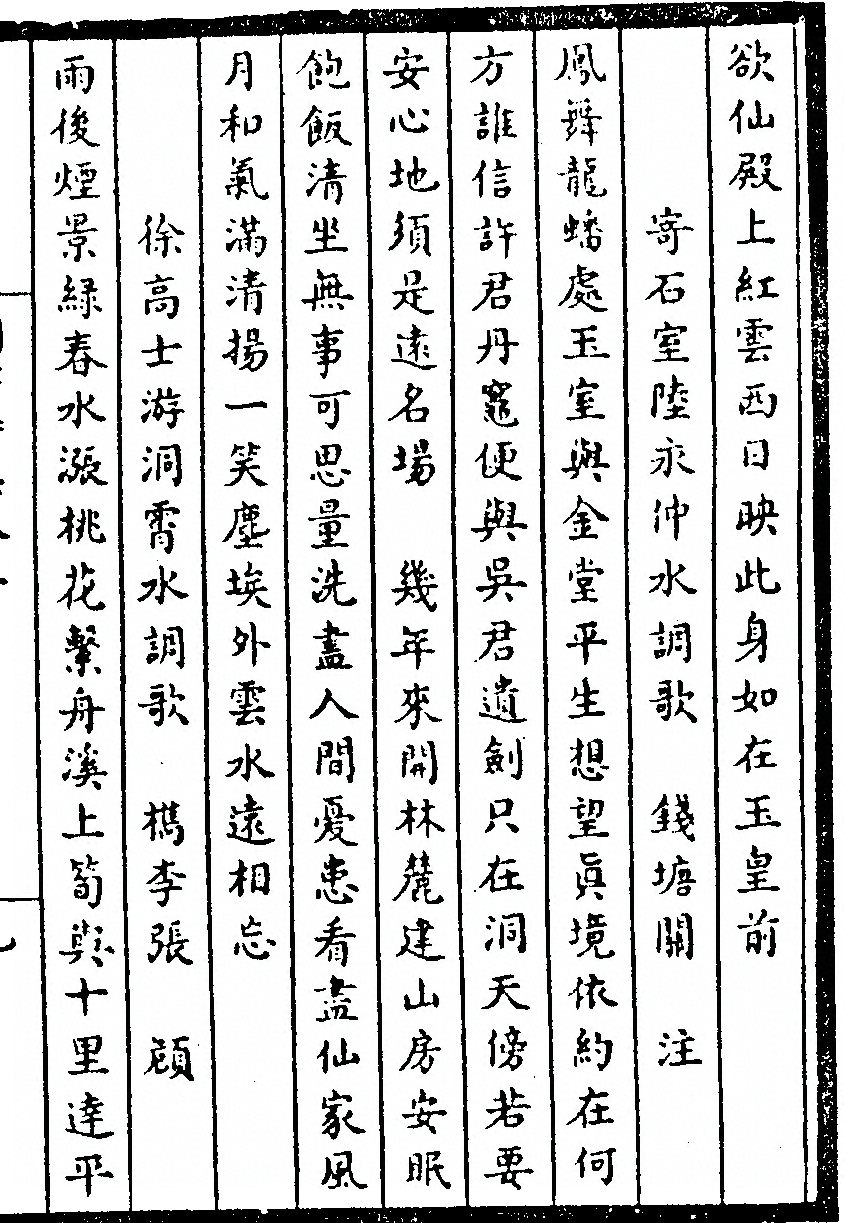 欲仙殿上紅雲西日映此身如在玉皇前
寄石室陸永仲水調歌　錢塘關　注
鳳舞龍蟠處玉室與金堂平生想望眞境依約在何
方誰信許君丹竈便與吳君遺劍只在洞天傍若要
安心地須是遠名場　幾年來開林麓建山房安眠
飽飯清坐無事可思量洗盡人間憂患看盡仙家風
月和氣滿清揚一笑塵埃外雲水遠相忘
徐高士游洞霄水調歌　檇李張　顧
雨後煙景緑春水漲桃花繫舟溪上筍輿十里達平